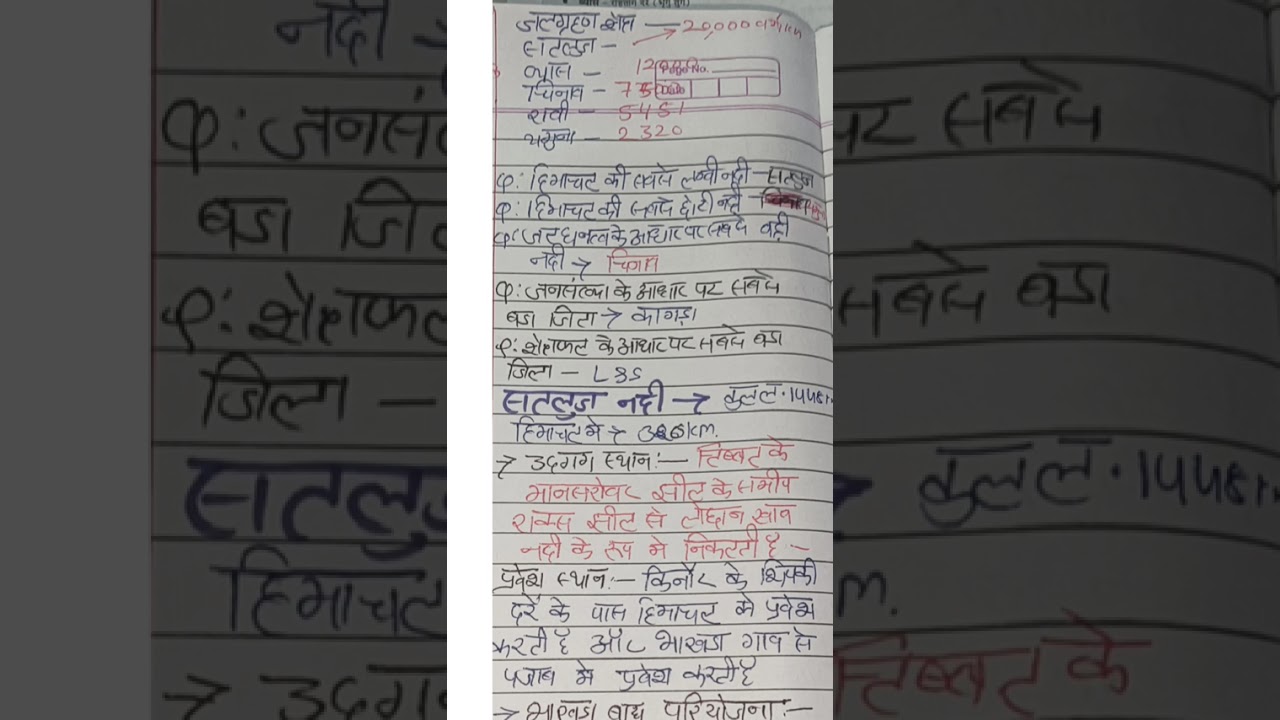 जलग्रहण क्षेत्र — → 20,000 वर्ग km
सतलुज —
व्यास — 12
चिनाव — 75
रावी — 5451
यमुना — 2320
Q: हिमाचल की सबसे लम्बी नदी — सतलुज
Q: हिमाचल की सबसे छोटी नदी —
Q: जल घनत्व के आधार पर सबसे बड़ी
नदी → चिनाव
Q: जनसंख्या के आधार पर सबसे
बडा जिला → कांगड़ा
Q: क्षेत्रफल के आधार पर सबसे बडा
जिला — L&S
सतलुज नदी →
हिमाचल मे → km.
→ उदगग स्थान:— तिब्बत के
मानसरोवर झील के समीप
राक्स झील से
नदी के रूप मे निकलती है:—
प्रवेश स्थान:— किनौर के शिपकी
दर्रे के पास हिमाचल मे प्रवेश
करती है और भाखडा गाव से
पंजाब मे प्रवेश करती है
→ भाखडा बाध परियोजना:—